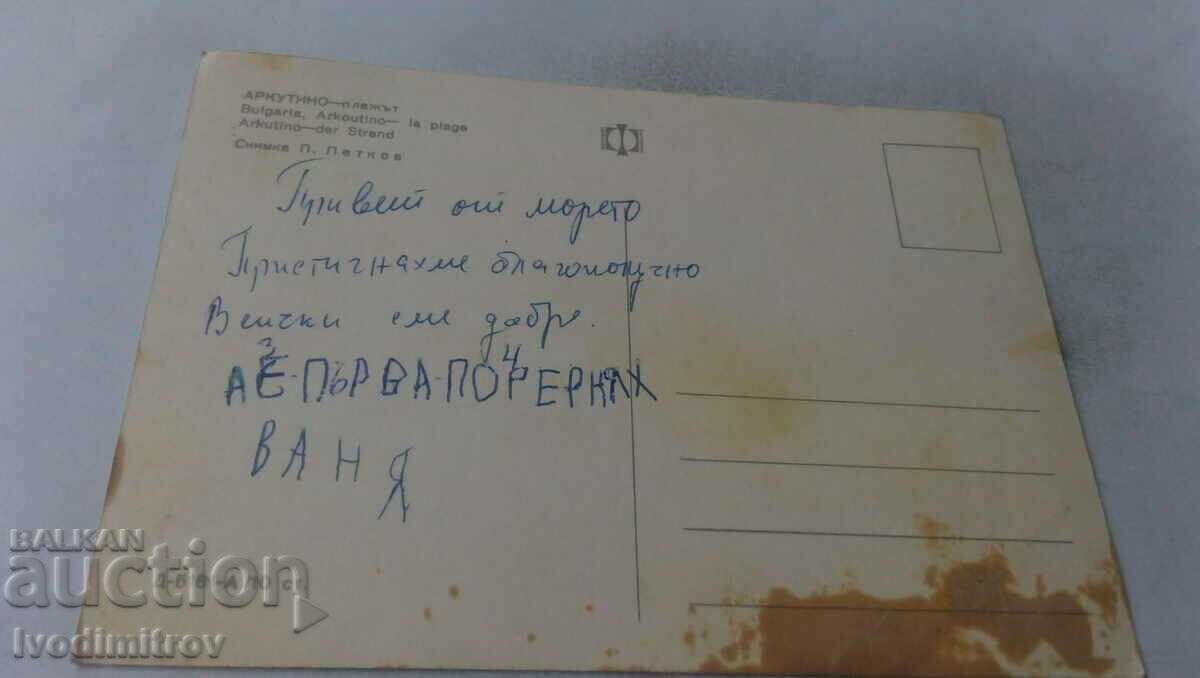 АРКУТИНО—плажът
Bulgaria, Arkoutino— la plage
Arkutino—der Strand
Снимка П. Петков
Привет от морето
Пристигнахме благополучно
Всички сме добре.
ВАНЯ
BALKAN
auction
Ivodimitrov